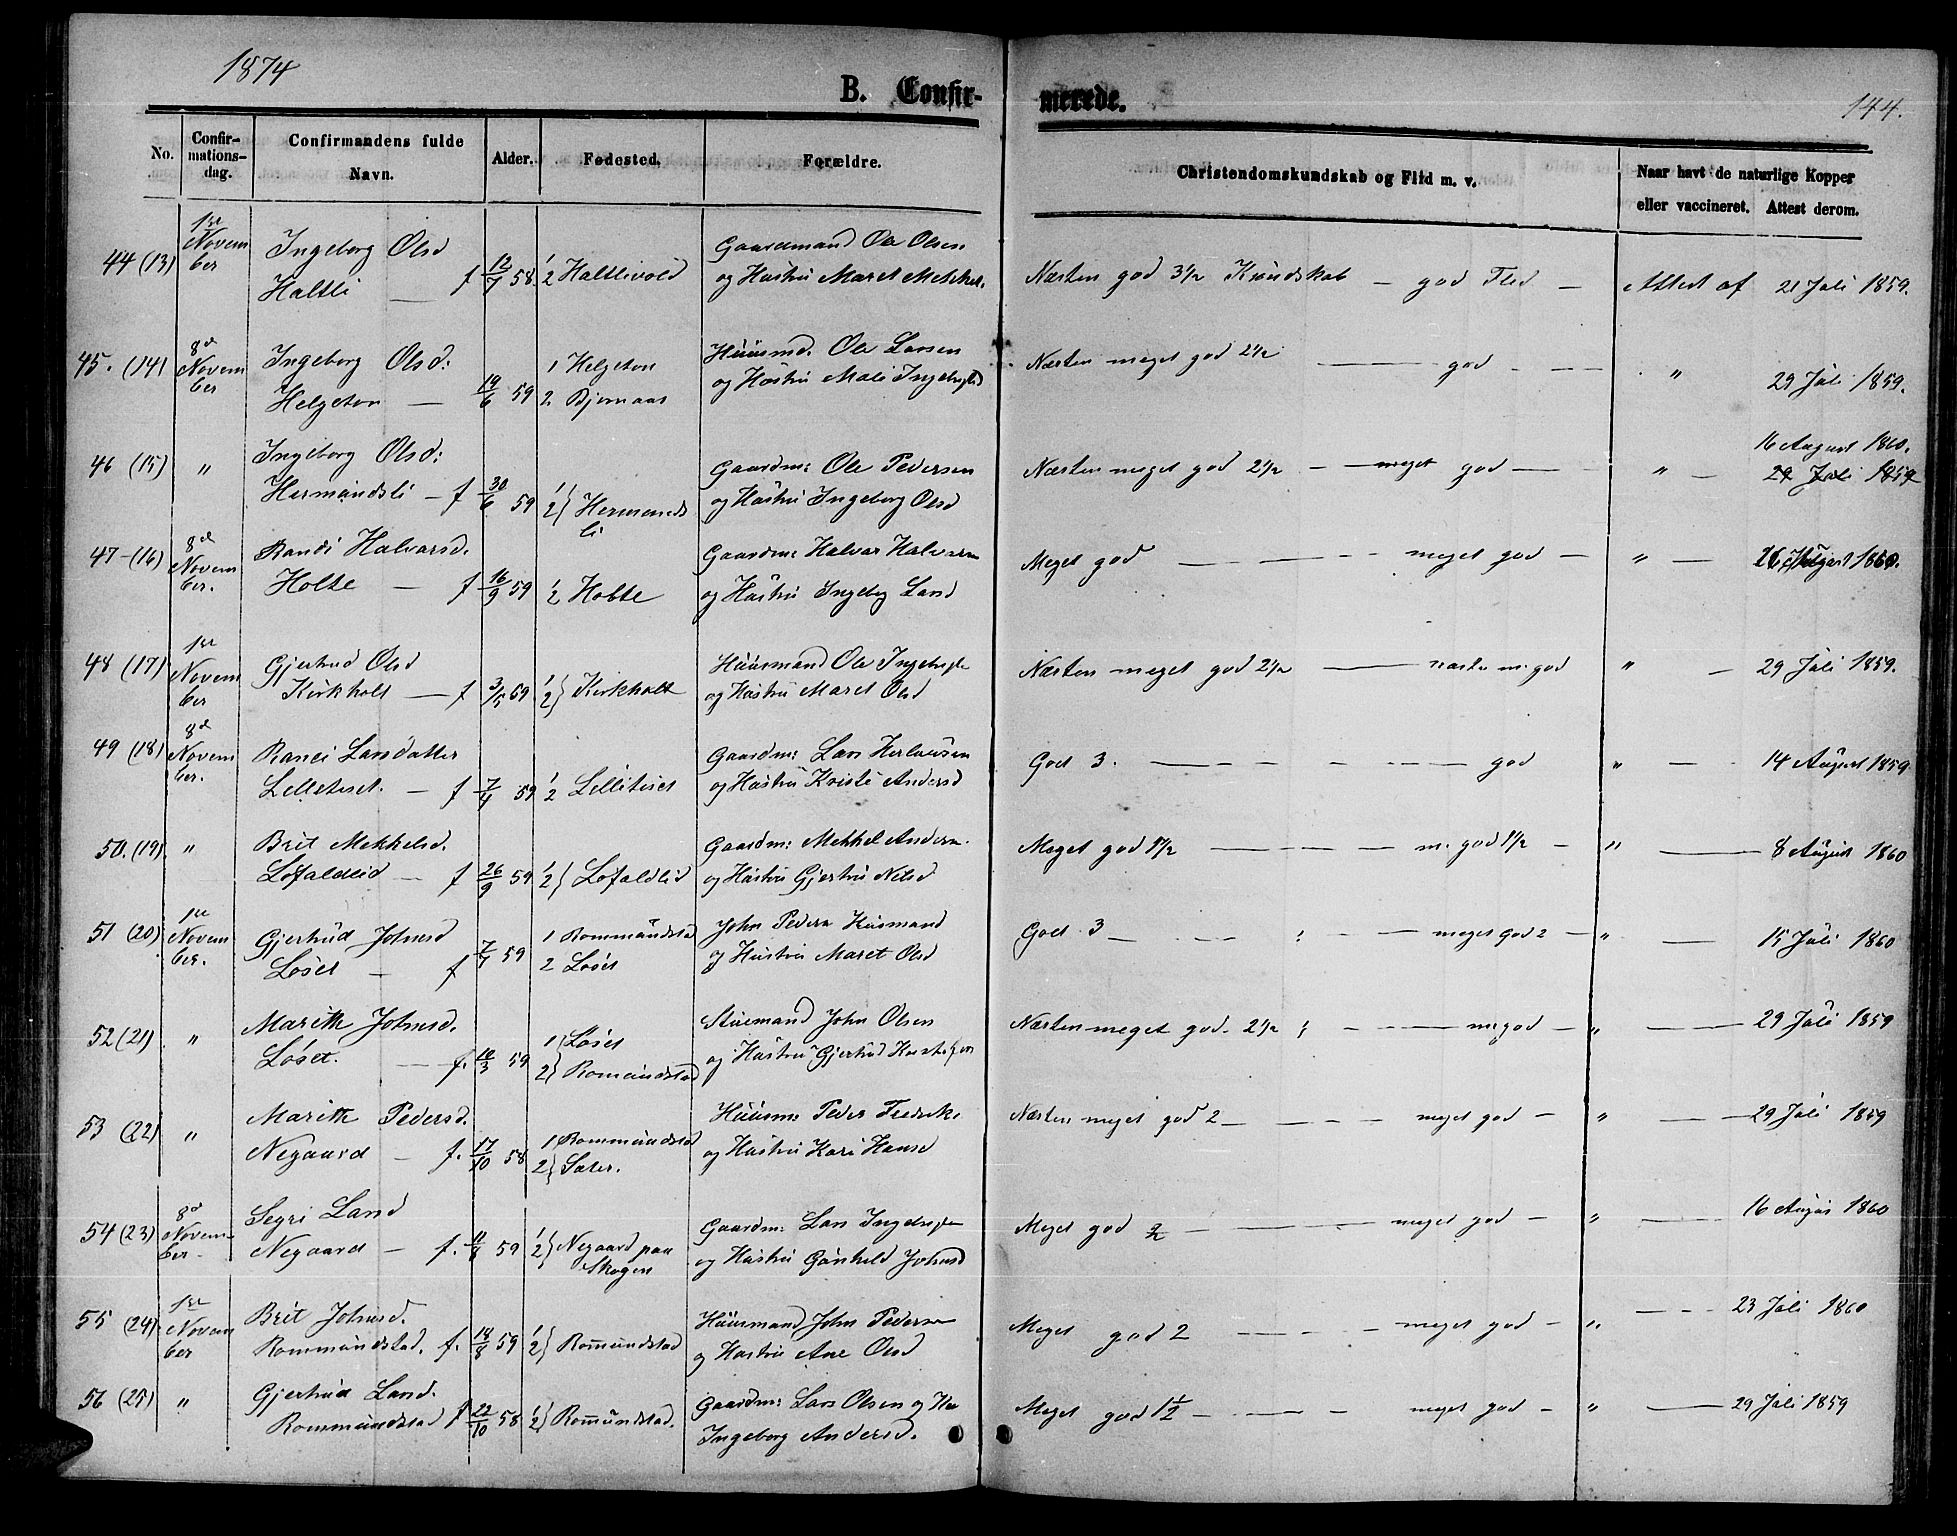 1874
B. Confirmerede.
144.
No.
Confirmationsdag.
Confirmandens fulde Navn.
Alder.
Fødested.
Forældre.
Christendomskundskab og Flid m. v.
Naar havt de naturlige Kopper eller vaccineret. Attest derom.
44 (13) 1ste November Ingeborg Olsd Haltli — f 12/7 58. 1/2 Haltlivold Gaardmand Ole Olsen og Hustru Maret Mekkel. Næsten god 3 1/2 Kundskab — god Flid — Attest af 21 Juli 1859.
45. (14) 8de November Ingeborg Olsd: Helgeton — 19/6 59 1 Helgeton 2 Bjørnaas Huusmd. Ole Larsen og Hustru Mali Næsten meget god 2 1/2 — god — " 29 Juli 1859.
46 (15) " Ingeborg Olsd: Hermundsli — f 30/6 59 1/2} Hermundsli Gaardm: Ole Pedersen og Hustru Ingeborg Olsd Næsten meget god 2 1/2 — meget god — " — 16 August 1860. 29 Juli 1859
47 (16) 8de November. Randi Halvarsd. Holte — f 16/9 59 1/2 Holte Gaardm: Halvar og Hustru Ingebog Larsd Meget god — meget god — " — August 1860.
48 (17) 1ste November Gjertrud Olsd Kirkholt — f 3/5 59 1/2} Kirkholt Huusmand Ole og Hustru Maret Olsd Næsten meget god 2 1/2 — næste m. god " — 29 Juli 1859.
49 (18) 8de November. Randi Larsdatter Lilleteset. — f 7/4 59 1/2 Lilliteset Gaardm: Lars og Hustru Kristi Andersd God 3. — god " — 14 August 1859
50. (19) " Brit Mekkelsd. Lofaldlid — f 26/9 59 1/2} Lofaldlid Gaardm: Mekkel Andersen og Hustru Gjertru Nilsd Meget god 1 1/2 — m. god 1 1/2 — " — 8 August 1860
51 (20) 1ste November. Gjertrud Johnsd Løset — f 7/7 59 1 Rommundstad 2 Løset John Peders Husmand og Hustru Maret Olsd God. 3 — meget god 2 — " — 15 Juli 1860
52 (21) " Marith Johnsd. Løset. — f. 10/3 59 1} Løset 2} Romundstad Stuemand John Olsen og Hustru Gjertrud Næsten meget god. 2 1/2 — m. god — " — 29 Juli 1859
53 (22) " Marith Pedersd. Negaard — f. 17/10 58 1 Rommundstad 2} Sæter. Huusm: Peder Frederik og Hustru Kari Hansd Næsten meget god 2 — meget god — " — 29 Juli 1859
54 (23) 8de November. Segri Larsd Negaard — f. 11/9 59 1/2} Negaard paa Skogen Gaardm: Lars og Hustru Gonhild Johnsd Meget god 2 — meget god — " — 16 Augus 1860
55 (24) 1ste November Brit Johnsd. Rommundstad. f. 18/8 59 1/2} Romundstad Huusmand John Pedersen og Hustru Ane Olsd Meget god 2 — meget god — " — 23 Juli 1860
56 (25) " Gjertrud Larsd. Rommundstad f 22/10 58 1/2} Romundstad. Gaardm: Lars Olsen og Hu Ingeborg Andersd. Meget god 1 1/2 — meget god — " — 29 Juli 1859